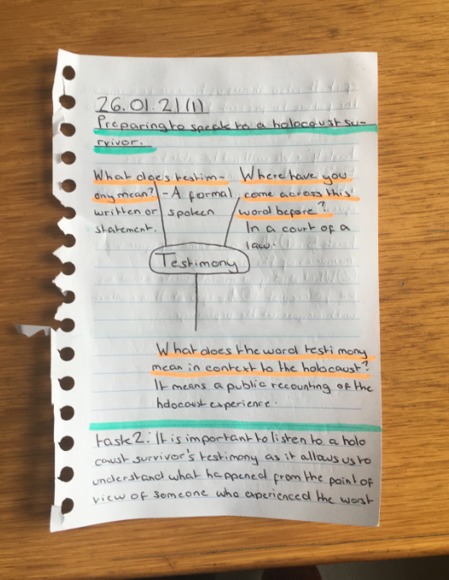 26.01.21(1)
Preparing to speak to a holocaust su-
rvivor.
What does testim-
ony mean? - A formal
written or spoken
statement.
Where have you
come across this
word before?
In a court of a
law.
Testimony
What does the word testimony
mean in context to the holocaust?
It means a public recounting of the
holocaust experience.
task2: It is important to listen to a holo
caust survivor's testimony as it allows us to
understand what happened from the point of
view of someone who experienced the worst